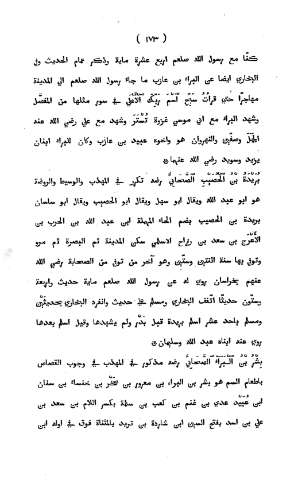 ( ١٧٣ )
كنا مع رسول الله صلعم اربع عشرة ماية وذكر تمام الحديث وفي
البخاري ايضا عن البراء بن عازب ما جاء رسول الله صلعم الى المدينة
مهاجرا حتى قرات سبح اسم ربك الاعلى في سور مثلها من المفصل
وشهد مع ابي موسى غزوة تستر وشهد مع علي رضي الله عنه
الجمل وصفين والنهروان هو واخوه عبيد بن عازب وكان للبراء ابنان
يزيد وسويد رضي الله عنهما
بريدة بن الحصيب الصحابي رضه تكرر في المهذب والوسيط والروضة
هو ابو عبد الله ويقال ابو سهل ويقال ابو الحصيب ويقال ابو ساسان
بريدة بن الحصيب بضم الحاء المهملة ابن عبد الله بن الحرث بن
الاعرج بن سعد بن رزاح الاسلمي سكن المدينة ثم البصرة ثم مرو
وتوفي بها سنة اثنتين وستين وهو آخر من توفي من الصحابة رضي الله
عنهم بخراسان روي له عن رسول الله صلعم ماية حديث واربعة
وستون حديثا اتفق البخاري ومسلم على حديث وانفرد البخاري بحديثين
ومسلم باحد عشر اسلم بريدة قبل بدر ولم يشهدها وقيل اسلم بعدها
روى عنه ابناه عبد الله وسليمان
بشر بن البراء الصحابي رضه مذكور في المهذب في وجوب القصاص
باطعام السم هو بشر بن البراء بن معرور بن صخر بن خنساء بن سنان
ابن عبيد عدي بن غنم بن كعب بن سلمة بكسر اللام بن سعد بن
علي بن اسد بفتح السين ابن شاردة بن تزيد بالمثناة فوق في اوله ابن